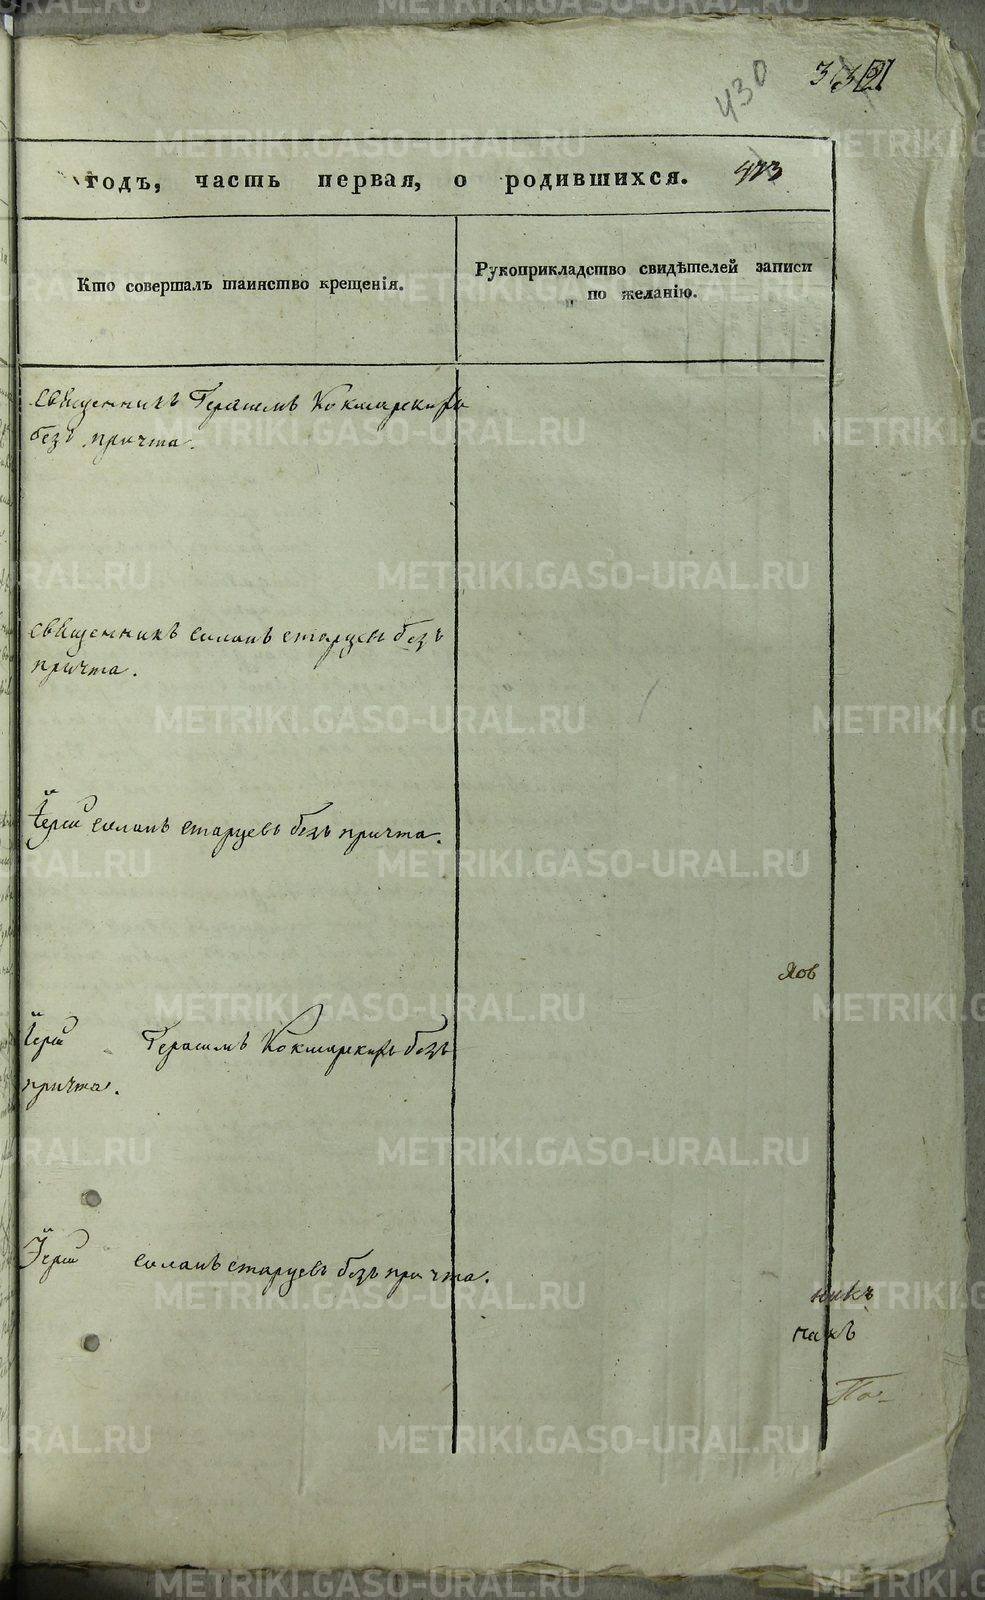 430
332
годъ, часть первая, о родившихся. 473
Кто совершалъ таинство крещенія.
Рукоприкладство свидѣтелей записи
по желанію.
священникъ Герасимъ Кокшарскихъ
безъ причта.
священникъ Силанъ Старцевъ безъ
причта.
Іерей Силанъ Старцевъ безъ причта.
Яов
Іерей Герасимъ Кокшарскихъ безъ
причта.
Іерей Силанъ Старцевъ безъ причта.
никъ
накъ
По
METRIKI.GASO-URAL.RU